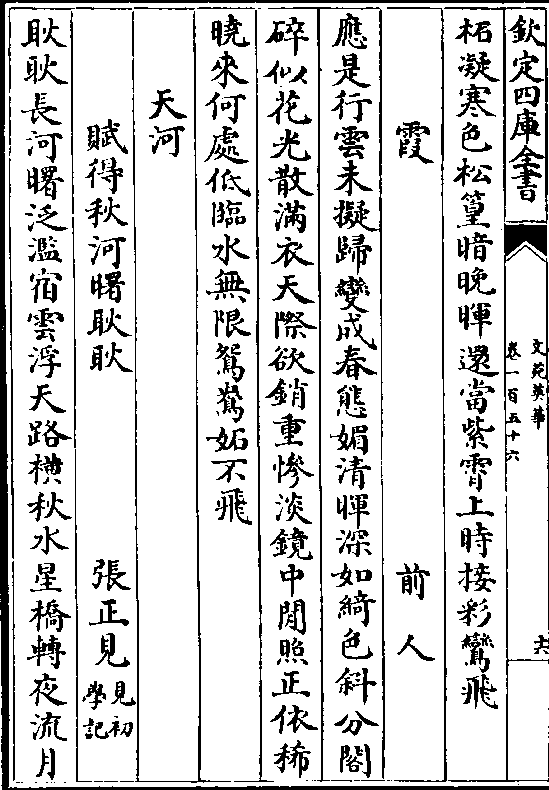 欽定四庫全書
文苑英華
卷一百五十六
六
柘凝寒色松篁暗晚暉還當紫霄上時接彩鸞飛
霞 前人
應是行雲未擬歸變成春態媚清暉深如綺色斜分閣
碎似花光散滿衣天際欲銷重慘淡鏡中閒照正依稀
曉來何處低臨水無限鴛鴦妬不飛
天河
賦得秋河曙耿耿 張正見 見初學記
耿耿長河曙泛濫宿雲浮天路横秋水星橋轉夜流月